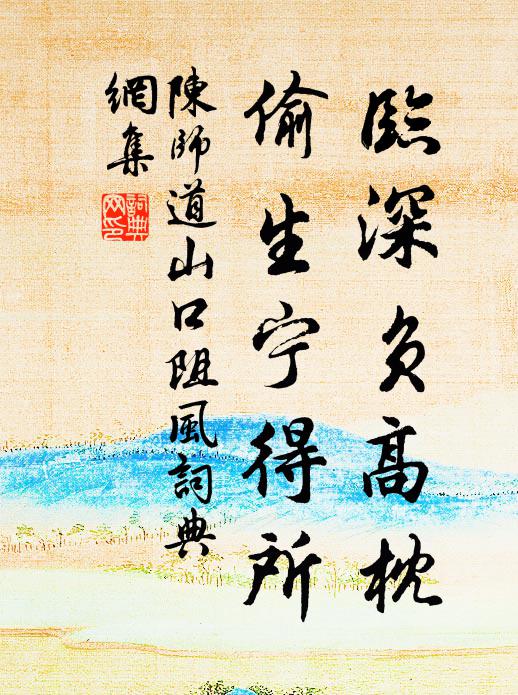 臨深负高枕
偷生宁得所
陳師道山口阻風詞典
網集
詞典
网印